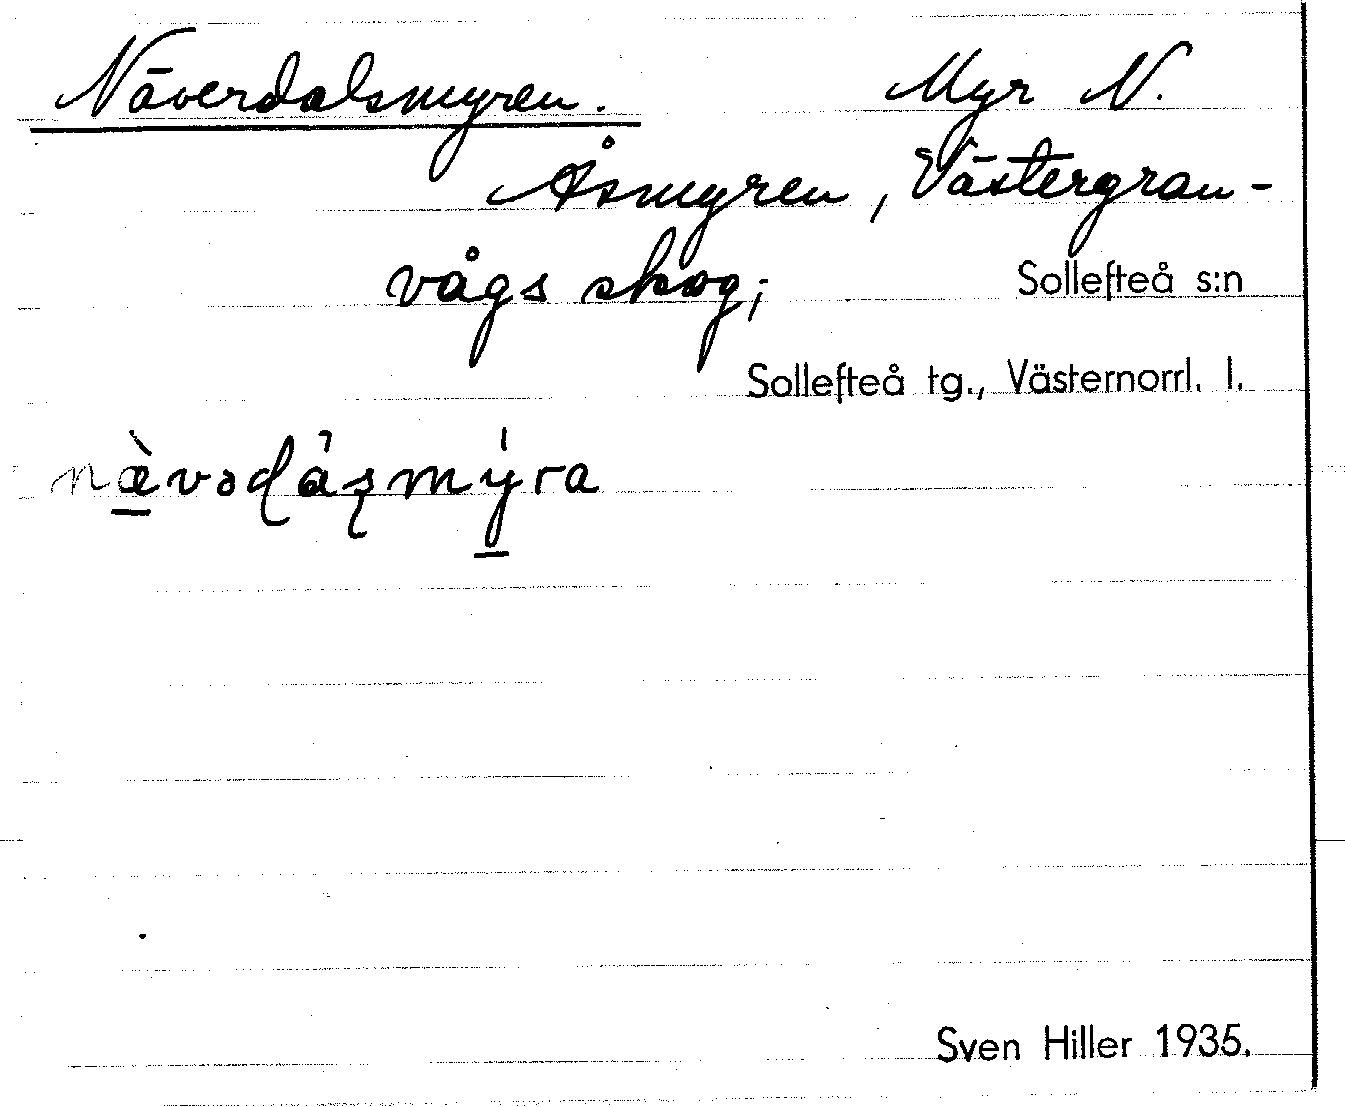 Näverdalsmyren. Myr N.
Åsmyren, Västergran-
vågs skog; Sollefteå s:n
Sollefteå tg., Västernorrl. l.
nævəɖáʂmýra
Sven Hiller 1935.